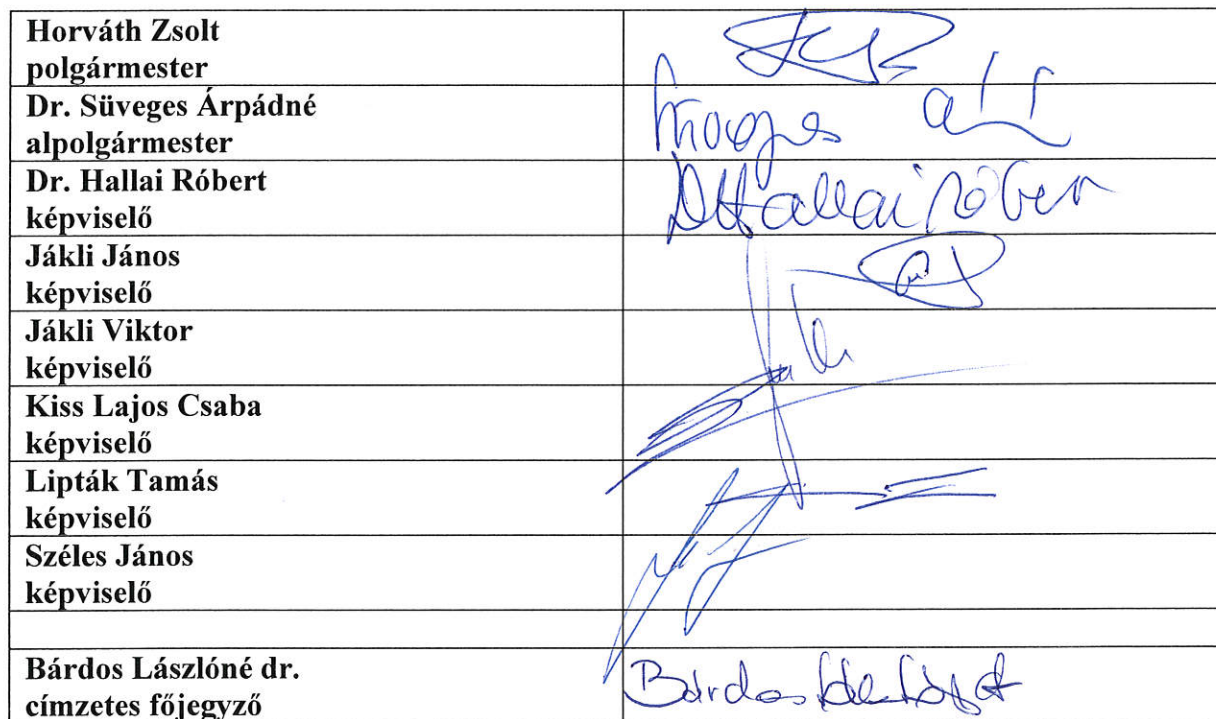 Horváth Zsolt
polgármester
Dr. Süveges Árpádné
alpolgármester
Dr. Hallai Róbert
képviselő
Jákli János
képviselő
Jákli Viktor
képviselő
Kiss Lajos Csaba
képviselő
Lipták Tamás
képviselő
Széles János
képviselő
Bárdos Lászlóné dr.
címzetes főjegyző
Bárdos